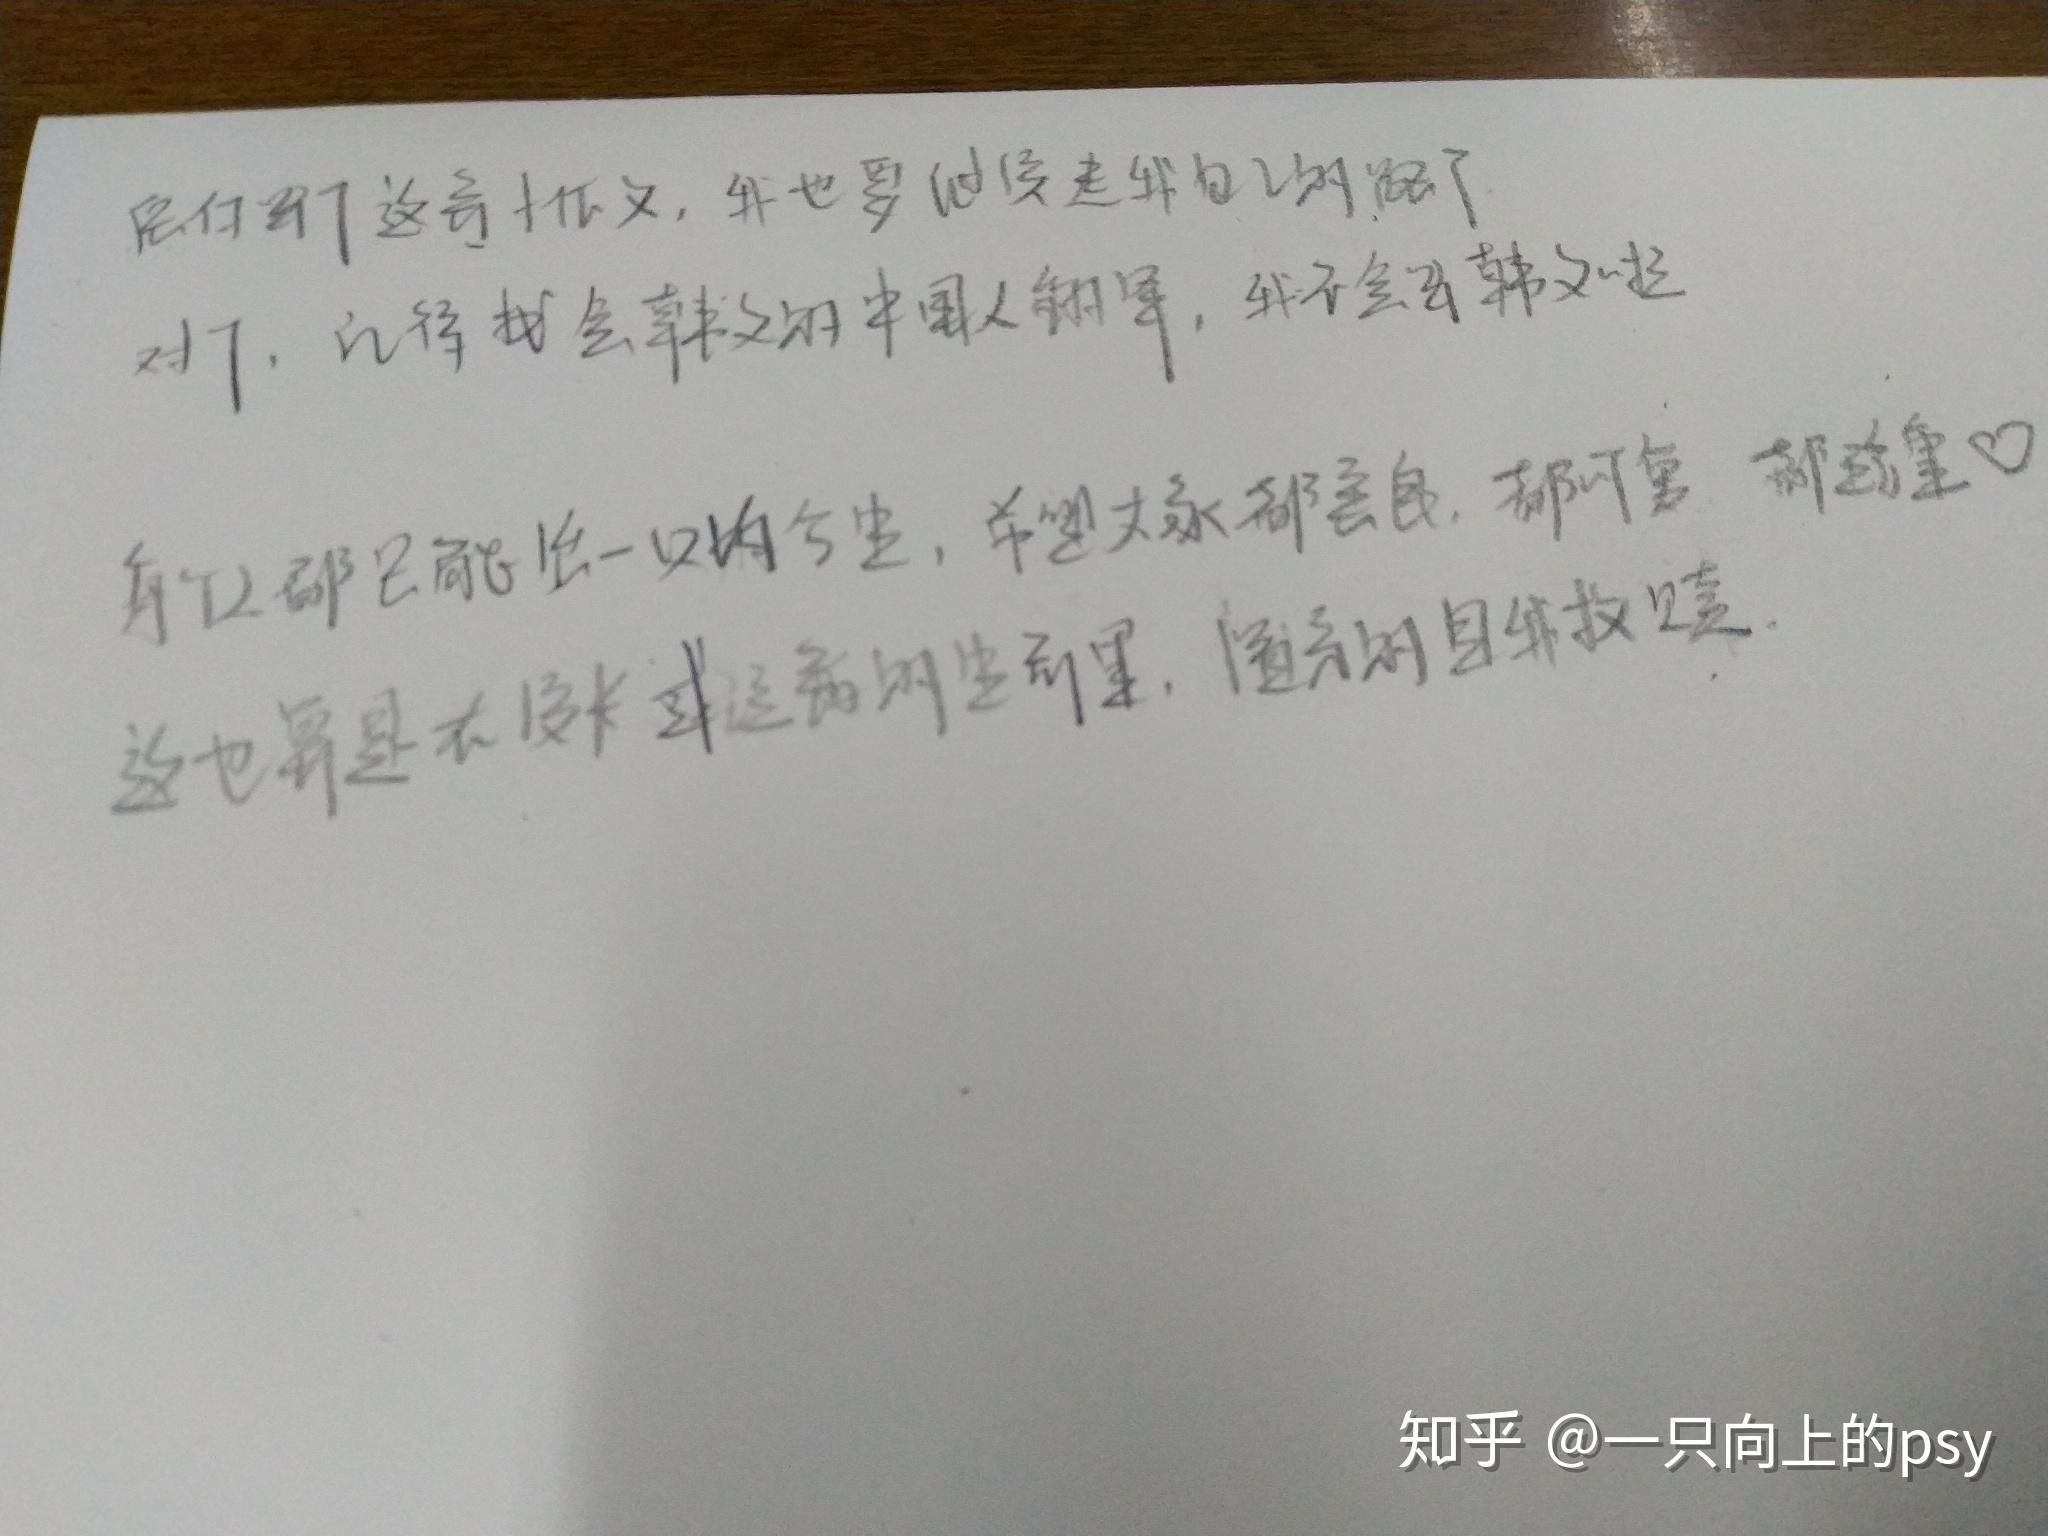 这令十作文，我也要继续走我自己的路了
对了，记得找会韩文的中国人翻译，我不会写韩文哈
每个人都只能活一次的今生，希望大家都善良，都可爱 都珍重♡
这也算是在漫长或短暂的生命里，随意的自我救赎.
知乎 @一只向上的psy